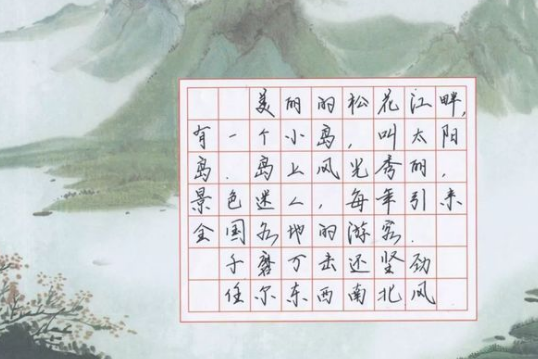 美丽的松花江畔，
有一个小岛，叫太阳
岛．岛上风光秀丽，
景色迷人，每年引来
全国各地的游客．
千磨万击还坚劲
任尔东西南北风